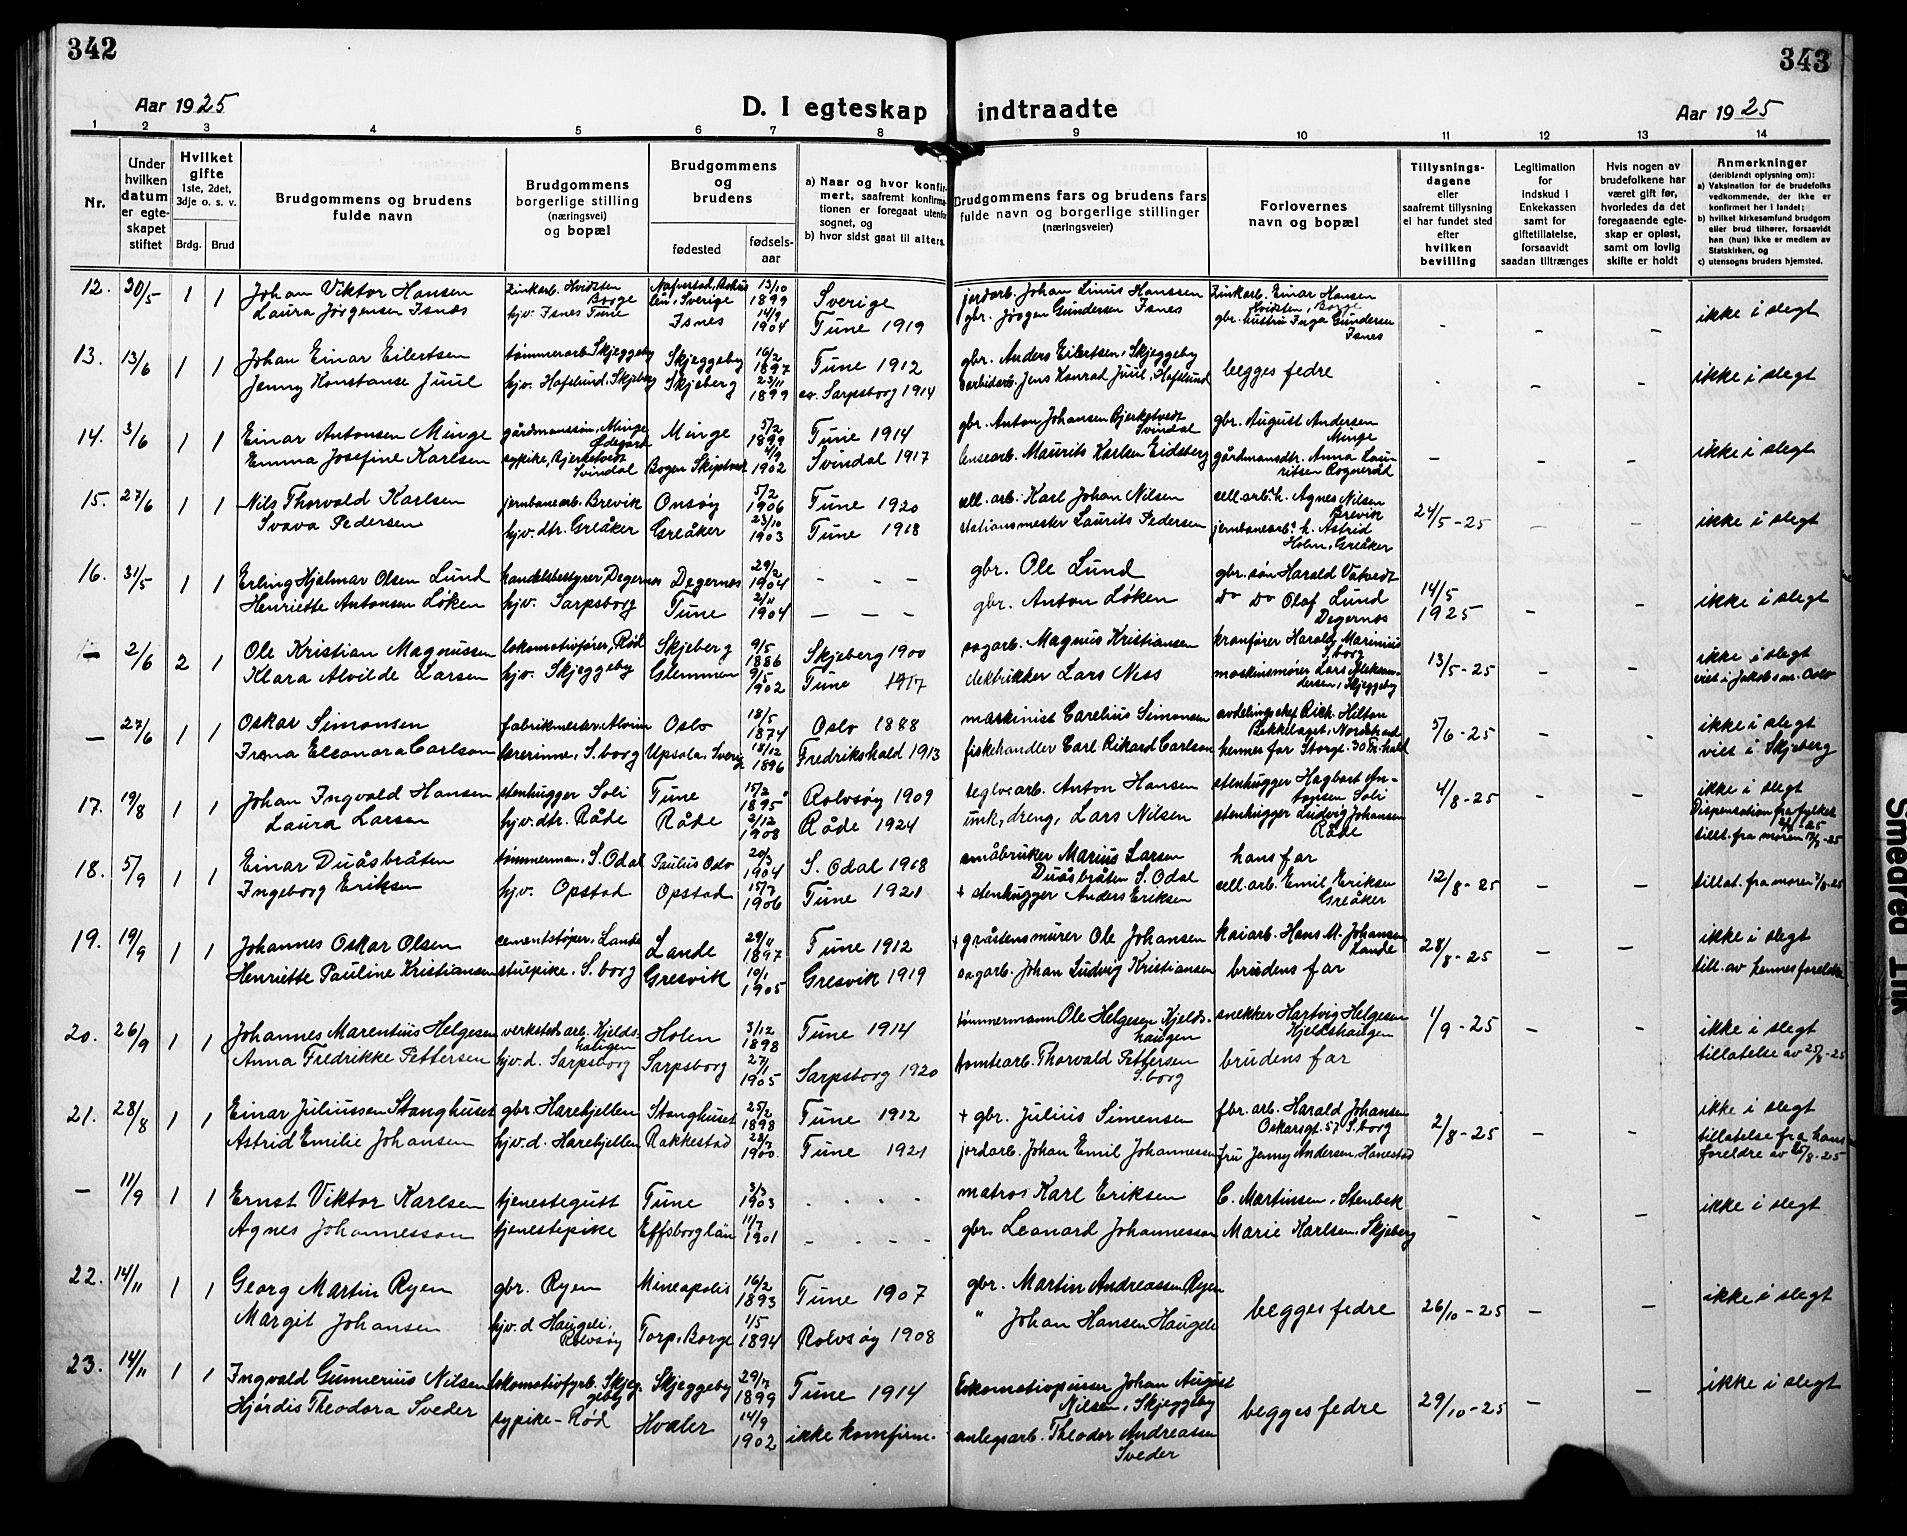 342
343
Aar 1925
D. I egteskap indtraadte
Aar 1925
1 2 3 4 5 6 7 8 9 10 11 12 13 14
Nr.
Under hvilken datum er egteskapet stiftet
Hvilket gifte 1ste, 2det, 3dje o. s. v.
Brdg. Brud
Brudgommens og brudens fulde navn
Brudgommens borgerlige stilling (næringsvei) og bopæl
Brudgommens og brudens
fødested
fødselsaar
a) Naar og hvor konfirmert, saafremt konfirmationen er foregaat utenfor sognet, og
b) hvor sidst gaat til alters.
Brudgommens fars og brudens fars fulde navn og borgerlige stillinger (næringsveier)
Forlovernes navn og bopæl
Tillysningsdagene eller saafremt tillysning ei har fundet sted efter hvilken bevilling
Legitimation for indskud i Enkekassen samt for giftetillatelse, forsaavidt saadan tiltrænges
Hvis nogen av brudefolkene har været gift før, hvorledes da det foregaaende egteskap er opløst, samt om lovlig skifte er holdt
Anmerkninger (deriblandt oplysning om):
a) Vaksination for de brudefolks vedkommende, der ikke er konfirmert her i landet;
b) hvilket kirkesamfund brudgom eller brud tilhører, forsaavidt han (hun) ikke er medlem av Statskirken, og
c) utensogns bruders hjemsted.
12. 30/5 1 1 Johan Viktor Hansen Zinkarb. Hvidsten Borge 13/10 1899 Sverige jordarb. Johan Linus Hanssen Zinkarb. Einar Hansen Hvidsten, Borge ikke i slegt
Laura Jörgensen Isnes hjv. Isnes Tune Isnes 14/9 1904 Tune 1919 gbr. Jörgen Gundersen Isnes gbr. hustru Inga Gundersen Isnes
13. 13/6 1 1 Johan Einar Eilertsen tømmerarb Skjeggeby Skjeggeby 16/2 1897 Tune 1912 gbr. Anders Eilertsen, Skjeggeby begges fedre ikke i slegt
Jenny Konstanse Juul hjv. Hafslund, Skjeberg Skjeberg 23/11 1899 Sarpsborg 1914 Jens Konrad Juul, Hafslund
14. 3/6 1 1 Einar Antonsen Minge gårdmannssøn, Minge Ødegård Minge 5/2 1899 Tune 1914 gbr. Anton Johansen Bjerketvedt Svindal gbr. August Andersen Minge ikke i slegt
Emma Josefine Karlsen sypike, Bjerketvedt Svindal Bogen Skiptvet 1902 Svindal 1917 lensearb. Maurits Karlsen Eidsberg gårdmansdtr. Anna Lauritsen
15. 27/6 1 1 Nils Thorvald Karlsen jernbanearb. Brevik Onsøy 5/2 1906 Tune 1920 cell. arb. Karl Johan Nilsen cell. arb. h. Agnes Nilsen Brevik 24/5-25 ikke i slegt
Svava Pedersen hjv. dtr. Greåker Greåker 23/10 1903 Tune 1918 stationsmester Laurits Pedersen jernbanearb. h. Astrid Holm, Greåker
16. 31/5 1 1 Erling Hjalmar Olsen Lund handelsbestyrer, Degernes Degernes 29/2 1904 - - - gbr. Ole Lund gbr. søn Harald Vatvedt 14/5 1925 ikke i slegt
Henriette Antonsen Løken hjv. Sarpsborg Tune 2/11 1904 - - - gbr. Anton Løken do do Olaf Lund Degernes
- 2/6 2 1 Ole Kristian Magnussen lokomotivfører, Rød Skjeberg 9/5 1886 Skjeberg 1900 sagarb. Magnus Kristiansen kranfører Harald Marinius S. borg 13/5-25 ikke i slegt
Klara Alvilde Larsen hjv. Skjeggeby Glemmen 9/5 1902 Tune 1917 elektrikker Lars Ness Lars Aleksandersen, Skjeggeby viet i Jakobs m. Oslo
- 27/6 1 1 Oskar Simonsen fabrikmester Oslo 18/5 1874 Oslo 1888 maskinist Carelius Simonsen avdelingschef Rich. Hilton Bekkelaget, Nordstrand 5/6-25 ikke i slegt
Irma Eleonora Carlson lærerinne, S. borg Upsala, Sverige 18/12 1896 Fredrikshald 1913 fiskehandler Carl Rikard Carlson hennes far Storgt. 30 Fr.hald viet i Skjeberg
17. 19/8 1 1 Johan Ingvald Hansen stenhugger Soli Tune 15/2 1895 Rolvsøy 1909 teglv. arb. Anton Hansen stenhugger Hagbart Antonsen Soli 4/8-25 ikke i slegt
Laura Larsen hjv. dtr. Råde Råde 2/12 1908 Råde 1924 Lars Nilsen stenhugger Ludvig Johansen Råde Dispensation fra fylket tillt. fra moren
18. 5/9 1 1 Einar Duåsbråten tømmerman, S. Odal Paulus Oslo 20/3 1904 S. Odal 1918 småbruker Marius Larsen Duåsbråten S. Odal hans far 12/8-25
Ingeborg Eriksen hjv. Opstad Opstad 15/7 1906 Tune 1921 + stenhugger Anders Eriksen cell. arb. Emil Eriksen Greåker tillat. fra moren
19. 19/9 1 1 Johannes Oskar Olsen cementstøper, Lande Lande 29/11 1897 Tune 1912 + gråstensmurer Ole Johansen kaiarb. Hans M. Johansen Lande 28/8-25 ikke i slegt
Henriette Pauline Kristiansen stuepike, S. borg Gresvik 10/1 1905 Gresvik 1919 sagarb. Johan Ludvig Kristiansen brudens far till. av hennes foreldre
20. 26/9 1 1 Johannes Marentius Helgesen verksted arb. Kjeldshaugen Holen 3/12 1898 Tune 1914 tømmermann Ole Helgesen Kjeldshaugen snekker Hartvig Helgesen Kjeldshaugen 1/9-25 ikke i slegt
Anna Fredrikke Pettersen hjv. d. Sarpsborg Sarpsborg 27/1 1905 Sarpsborg 1920 tomtearb. Thorvald Pettersen S. borg brudens far tillatelse av 25/8-25
21. 28/8 1 1 Einar Juliussen Stanghuset gbr. Harehjellen Stanghuset 25/2 1898 Tune 1912 + gbr. Julius Simensen fbr. arb. Harald Johansen Oskarsgt. 57 S. borg 2/8-25 ikke i slegt
Astrid Emilie Johansen hjv. d. Harehjellen Rakkestad 1900 Tune 1921 jordarb. Johan Emil Johannessen fru Jenny Andersen, Hanestad tillatelse fra hans foreldre av 15/8-25
- 11/9 1 1 Ernst Viktor Karlsen tjenestegutt Tune 3/3 1903 - - - - matros Karl Eriksen C. Martinsen, Stenbek ikke i slegt
Agnes Johannesson tjenestepike Elfsborg län 11/7 1901 - - - - gbr. Leonard Johannesson Marie Karlsen, Skjeberg
22. 14/11 1 1 Georg Martin Ryen gbr. Ryen Mineapolis 16/2 1893 Tune 1907 gbr. Martin Andreassen Ryen begges fedre 26/10-25 ikke i slegt
Margit Johansen hjv. d Haugeli, Rolvsøy Torp, Borge 1/5 1894 Rolvsøy 1908 " Johan Hansen Haugeli
23. 14/11 1 1 Ingvald Gunnerius Nilsen lokomotivfyrb. Skjeggeby Skjeggeby 29/7 1899 Tune 1914 Lokomotivpusser Johan August Nilsen, Skjeggeby begges fedre 29/10-25 ikke i slegt
Hjördis Theodora Sveder sypike - Rød Hvaler 14/9 1902 ikke komfirm. anlegsarb. Theodor Andreassen Sveder
Smedrød Trik